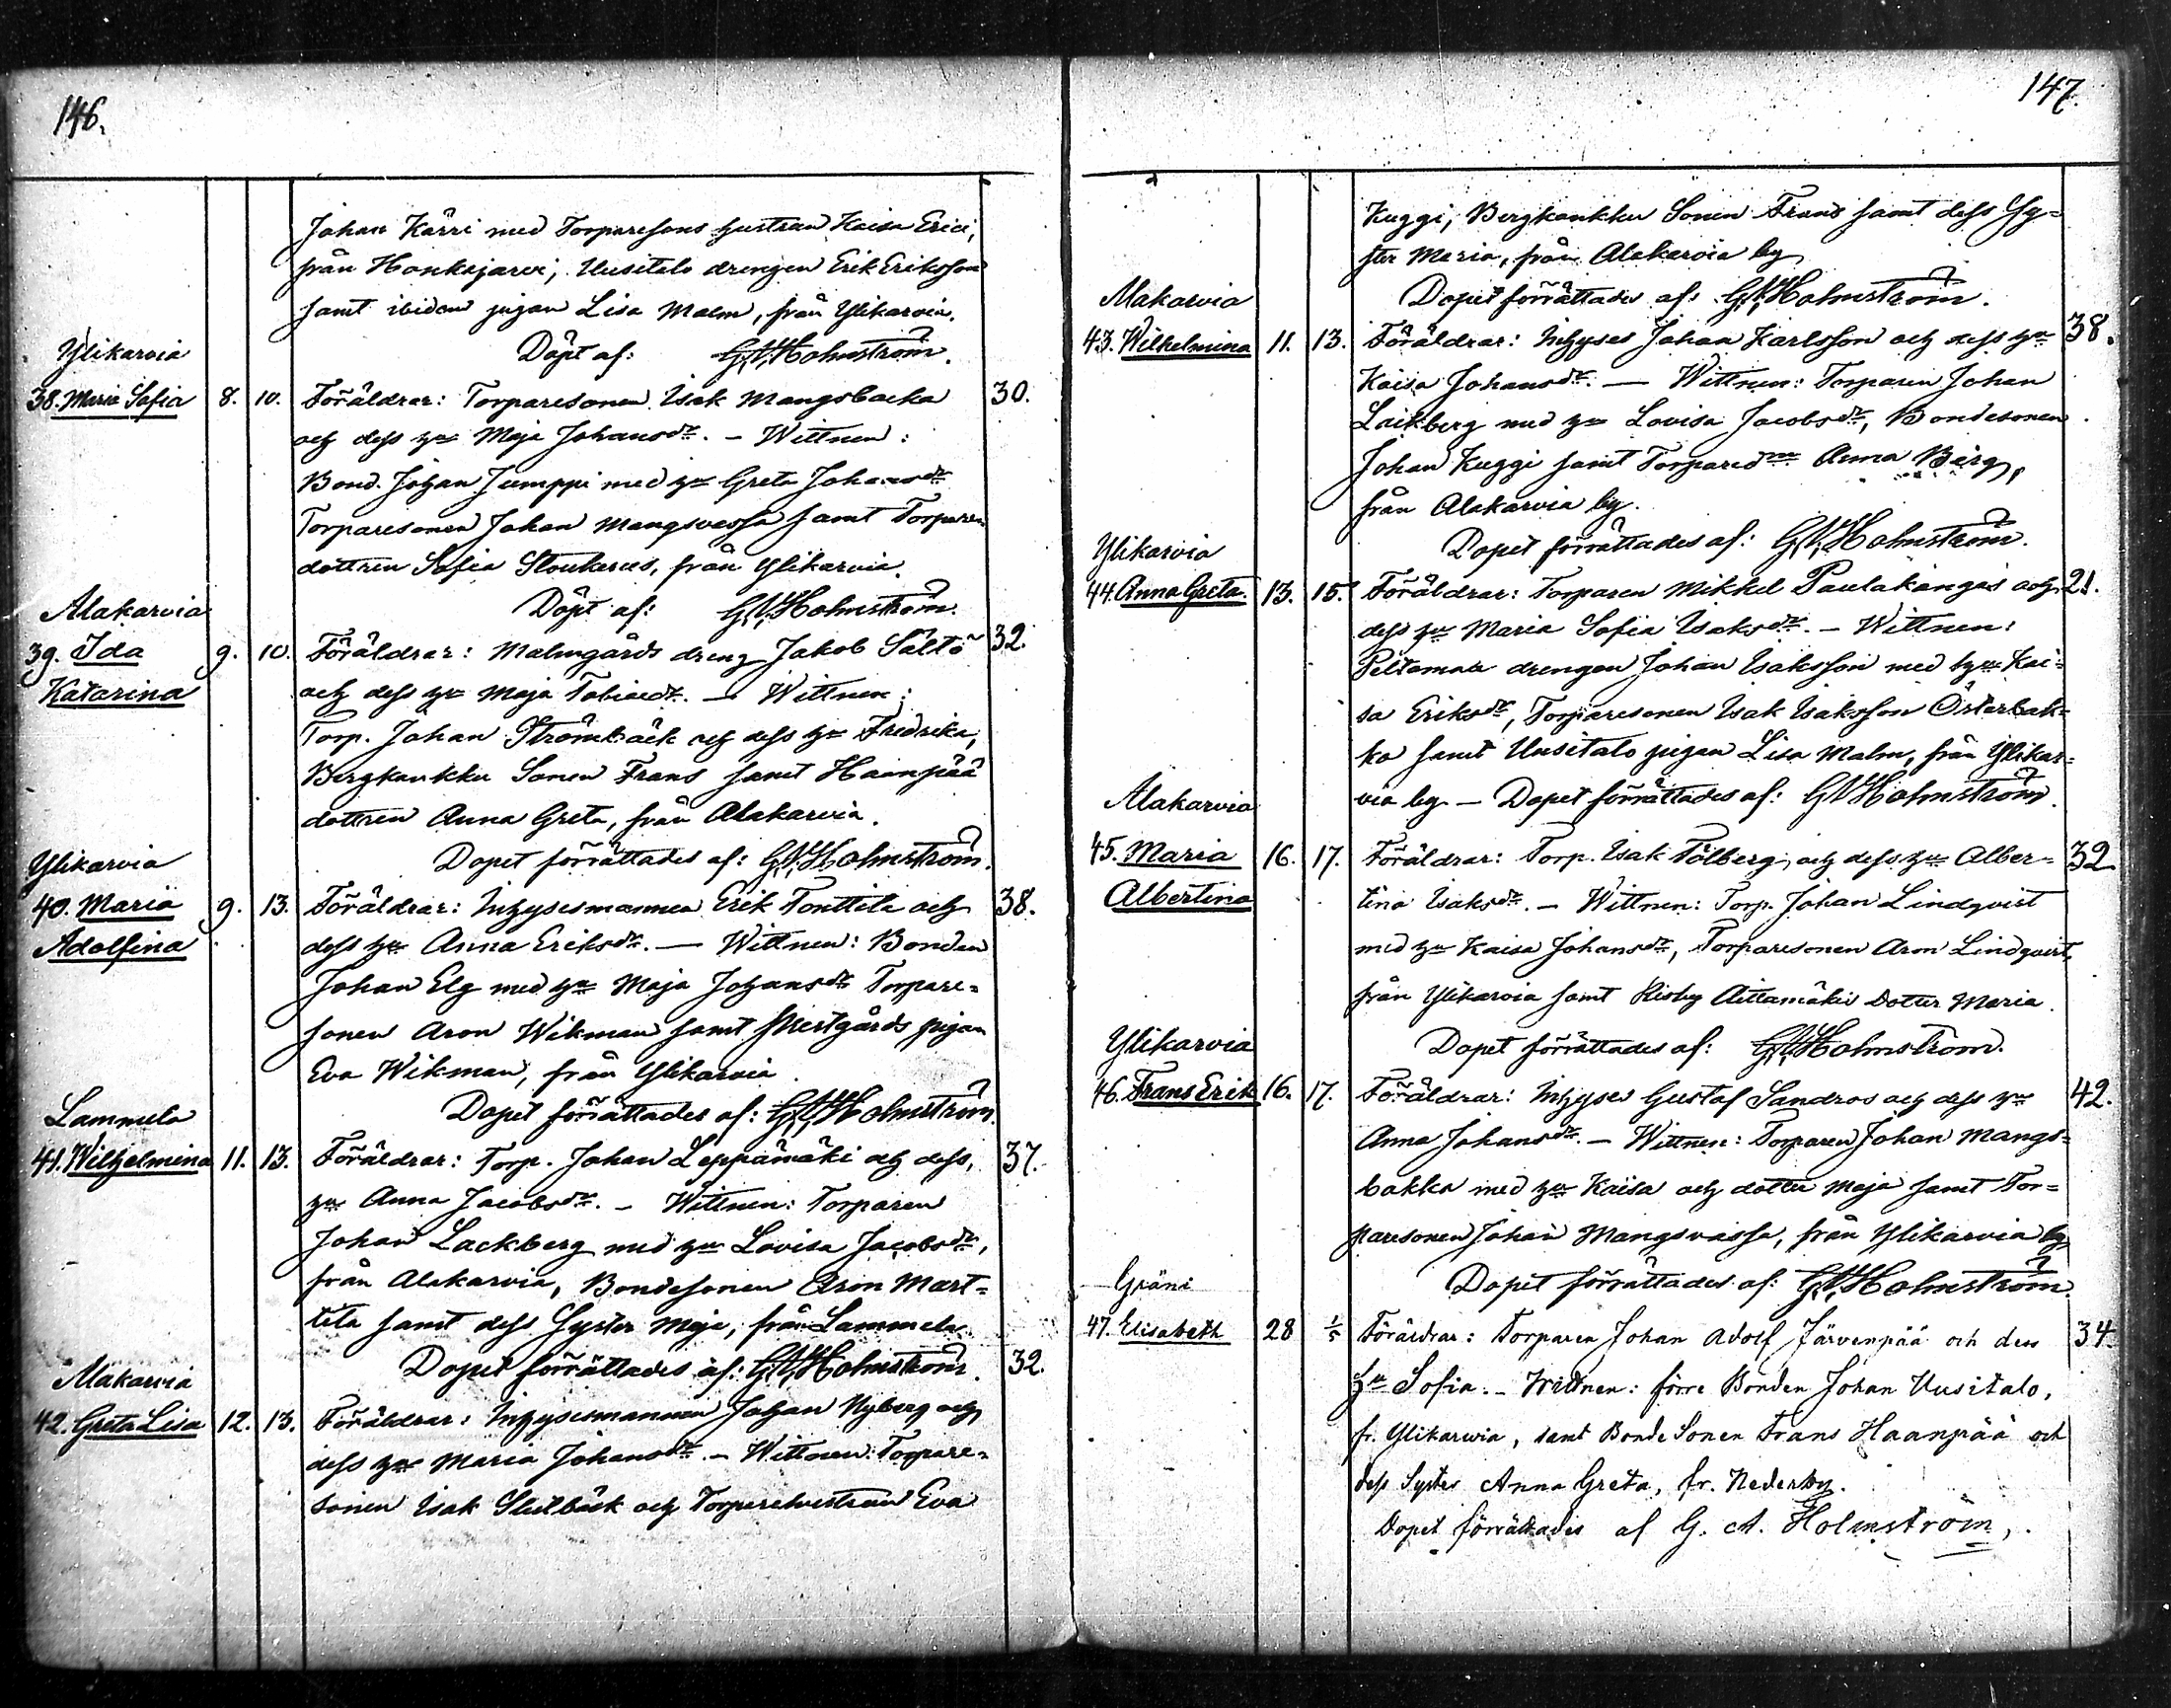 146.
Johan Kärri med Torparesons hustrun Kaisa Erici,
från Honkajarvi, Uusitalo drengen Erik Eriksson
samt ibidem pigan Lisa Malm, från Ylikarvia.
Döpt af: G.A.Holmström.
Ylikarvia
38. Maria Sofia 8. 10. Föräldrar: Torparesonen Isak Mangsbacka 30.
och dess hu Maja Johansdr. – Wittnen:
Bond. Johan Jumppi med hu Greta Johansdr
Torparesonen Johan Mangsvassa samt Torpare-
dottren Sofia, från Ylikarvia.
Döpt af: G.A.Holmström.
Alakarvia
39. Ida 9. 10. Föräldrar: Malmgårds dreng Jakob Sältö 32.
Katarina och dess hu Maja Tobiaedr. – Wittnen:
Torp. Johan Strömbäck och dess hu Fredrika,
Bergkankku Sonen Frans samt Haanpää
dottren Anna Greta, från Alakarvia.
Dopet förrättades af: G.A.Holmström.
Ylikarvia
40. Maria 9. 13. Föräldrar: Inhysesmannen Erik Tonttila och 38.
Adolfina dess hu Anna Eriksdr. — Wittnen: Bonden
Johan Elg med hu Maja Johansdr Torpare-
sonen Aron Wikman samt pigan
Eva Wikman, från Ylikarvia.
Dopet förrättades af: G.A.Holmström.
Lammela
41. Wilhelmina 11. 13. Föräldrar: Torp. Johan Leppämäki och dess, 37.
hu Anna Jacobsdr. – Wittnen: Torparen
Johan Lackberg med hu Lovisa Jacobsdr,
från Alakarvia, Bondesonen Aron Mart-
tila samt dess Syster Maja, från Lammela.
Dopet förrättades af: G.A.Holmström. 32.
Alakarvia
42. Greta Lisa 12. 13. Föräldrar: Inhysesmannen Johan Nyberg och
dess hu Maria Johansdr. – Wittnen: Torpare-
sonen Isak Slutbäck och Torparehustrun Eva
147.
Kuggi, Bergkankku Sonen Frans samt dess Sy-
ster Maria, från Alakarvia by
Dopet förrättades af: G.A.Holmström.
Alakarvia
43. Wilhelmina 11. 13. Föräldrar: Inhyses Johan Karlsson och dess hu 38.
Kaisa Johansdr. — Wittnen: Torparen Johan
Lackberg med hu Lovisa Jacobsdr, Bondesonen
Johan Kuggi samt Anna Berg,
från Alakarvia by.
Dopet förrättades af: G.A.Holmström.
Ylikarvia
44. Anna Greta. 13. 15. Föräldrar: Torparen Mikkel Paulakangas och 21.
dess hu Maria Sofia Isaksdr. – Wittnen:
Peltomaa drengen Johan Isaksson med hu Kai-
sa Eriksdr, Torparesonen Isak Isaksson Österbak-
ka samt Uusitalo pigan Lisa Malm, från Ylikar-
via by – Dopet förrättades af: G.A.Holmström.
Alakarvia
45. Maria 16. 17. Föräldrar: Torp. Isak Fölberg och dess hu Alber- 32
Albertina tina Isaksdr. – Wittnen: Torp. Johan Lindqvist
med hu Kaisa Johansdr, Torparesonen Aron Lindqvist,
från Ylikarvia samt Aittamäki Dotter Maria.
Dopet förrättades af: G.A.Holmström.
Ylikarvia
46. Frans Erik 16. 17. Föräldrar: Inhyses Gustaf Sandros och dess hu 42.
Anna Johansdr. – Wittnen: Torparen Johan Mangs-
bakka med hu Kaisa och dotter Maja samt Tor-
paresonen Johan Mangsvassa, från Ylikarvia by
Dopet förrättades af: G.A.Holmström.
Gräni
47. Elisabeth 28 1/5 Föräldrar: Torparen Johan Adolf Järvenpää och dess 34.
hu Sofia. – Wittnen: förre Bonden Johan Uusitalo,
fr. Ylikarvia, samt Bonde Sonen Frans Haanpää och
dess Syster Anna Greta, fr. Nederby.
Dopet förrättades af G. A. Holmström,.